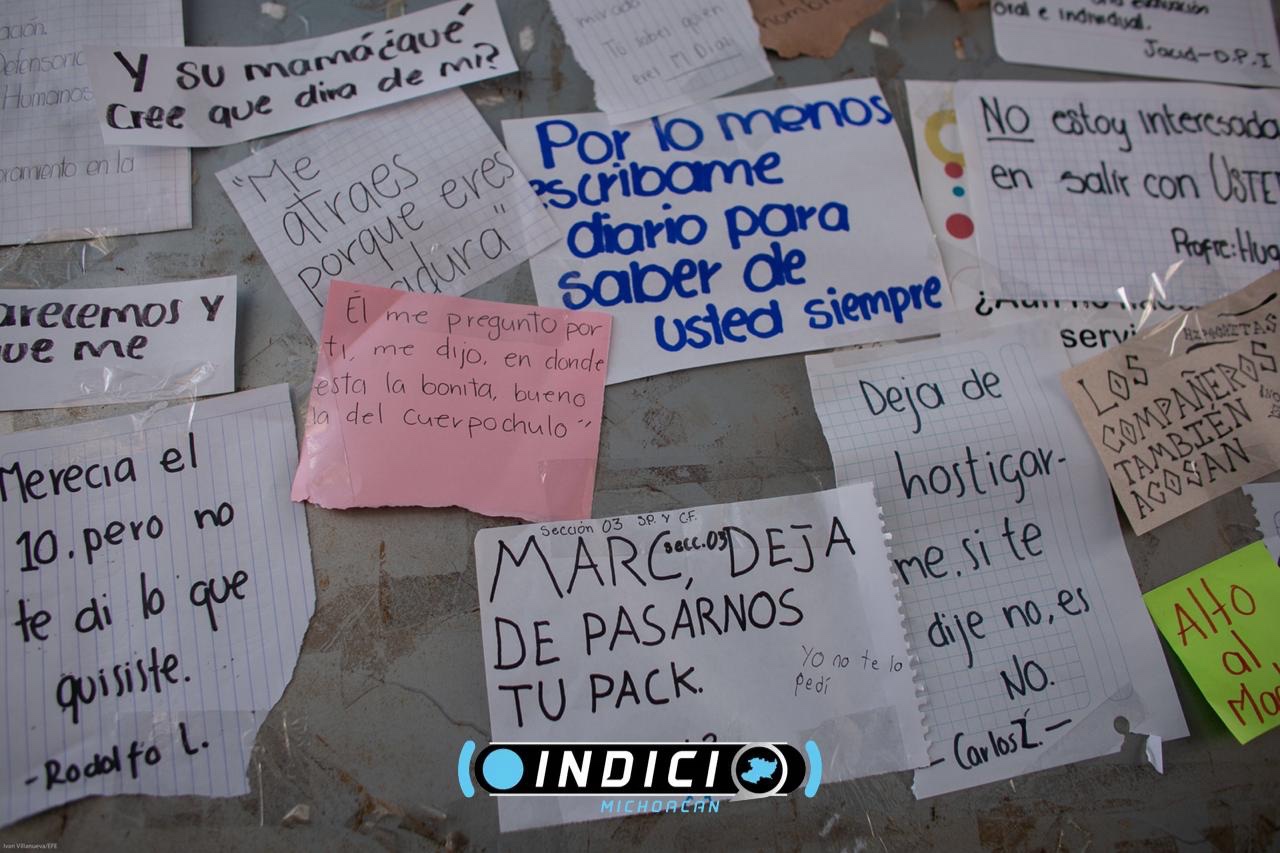 ación.
Defensoría
Humanos
oramiento en la
Y su mamá ¿que
Cree que dira de mi?
mirado
Tú sabes quien
eres M. Diaz
hombre
oral e individual.
Jacid-D.P.I
"Me
atraes
porque eres
adura"
Por lo menos
escribame
diario para
saber de
usted siempre
NO estoy interesada
en salir con USTE
Profre: Hug
arecemos y
que me
El me pregunto por
ti, me dijo, en donde
esta la bonita, bueno
la del cuerpochulo"
servi
HIPOCRITAS
LOS
COMPAÑEROS
TAMBIÉN
ACOSAN
Merecia el
10.pero no
te di lo que
quisiste.
-Rodolfo L.
Sección 03 S.P. Y C.F.
secc.03
MARC, DEJA
DE PASARNOS
TU PACK.
Yo no te lo
pedí
Deja de
hostigar-
me.si te
dije no,es
NO.
- Carlos Z. -
Alto
al
INDICIO
MICHOACÁN
Ivan Villanueva/EFE